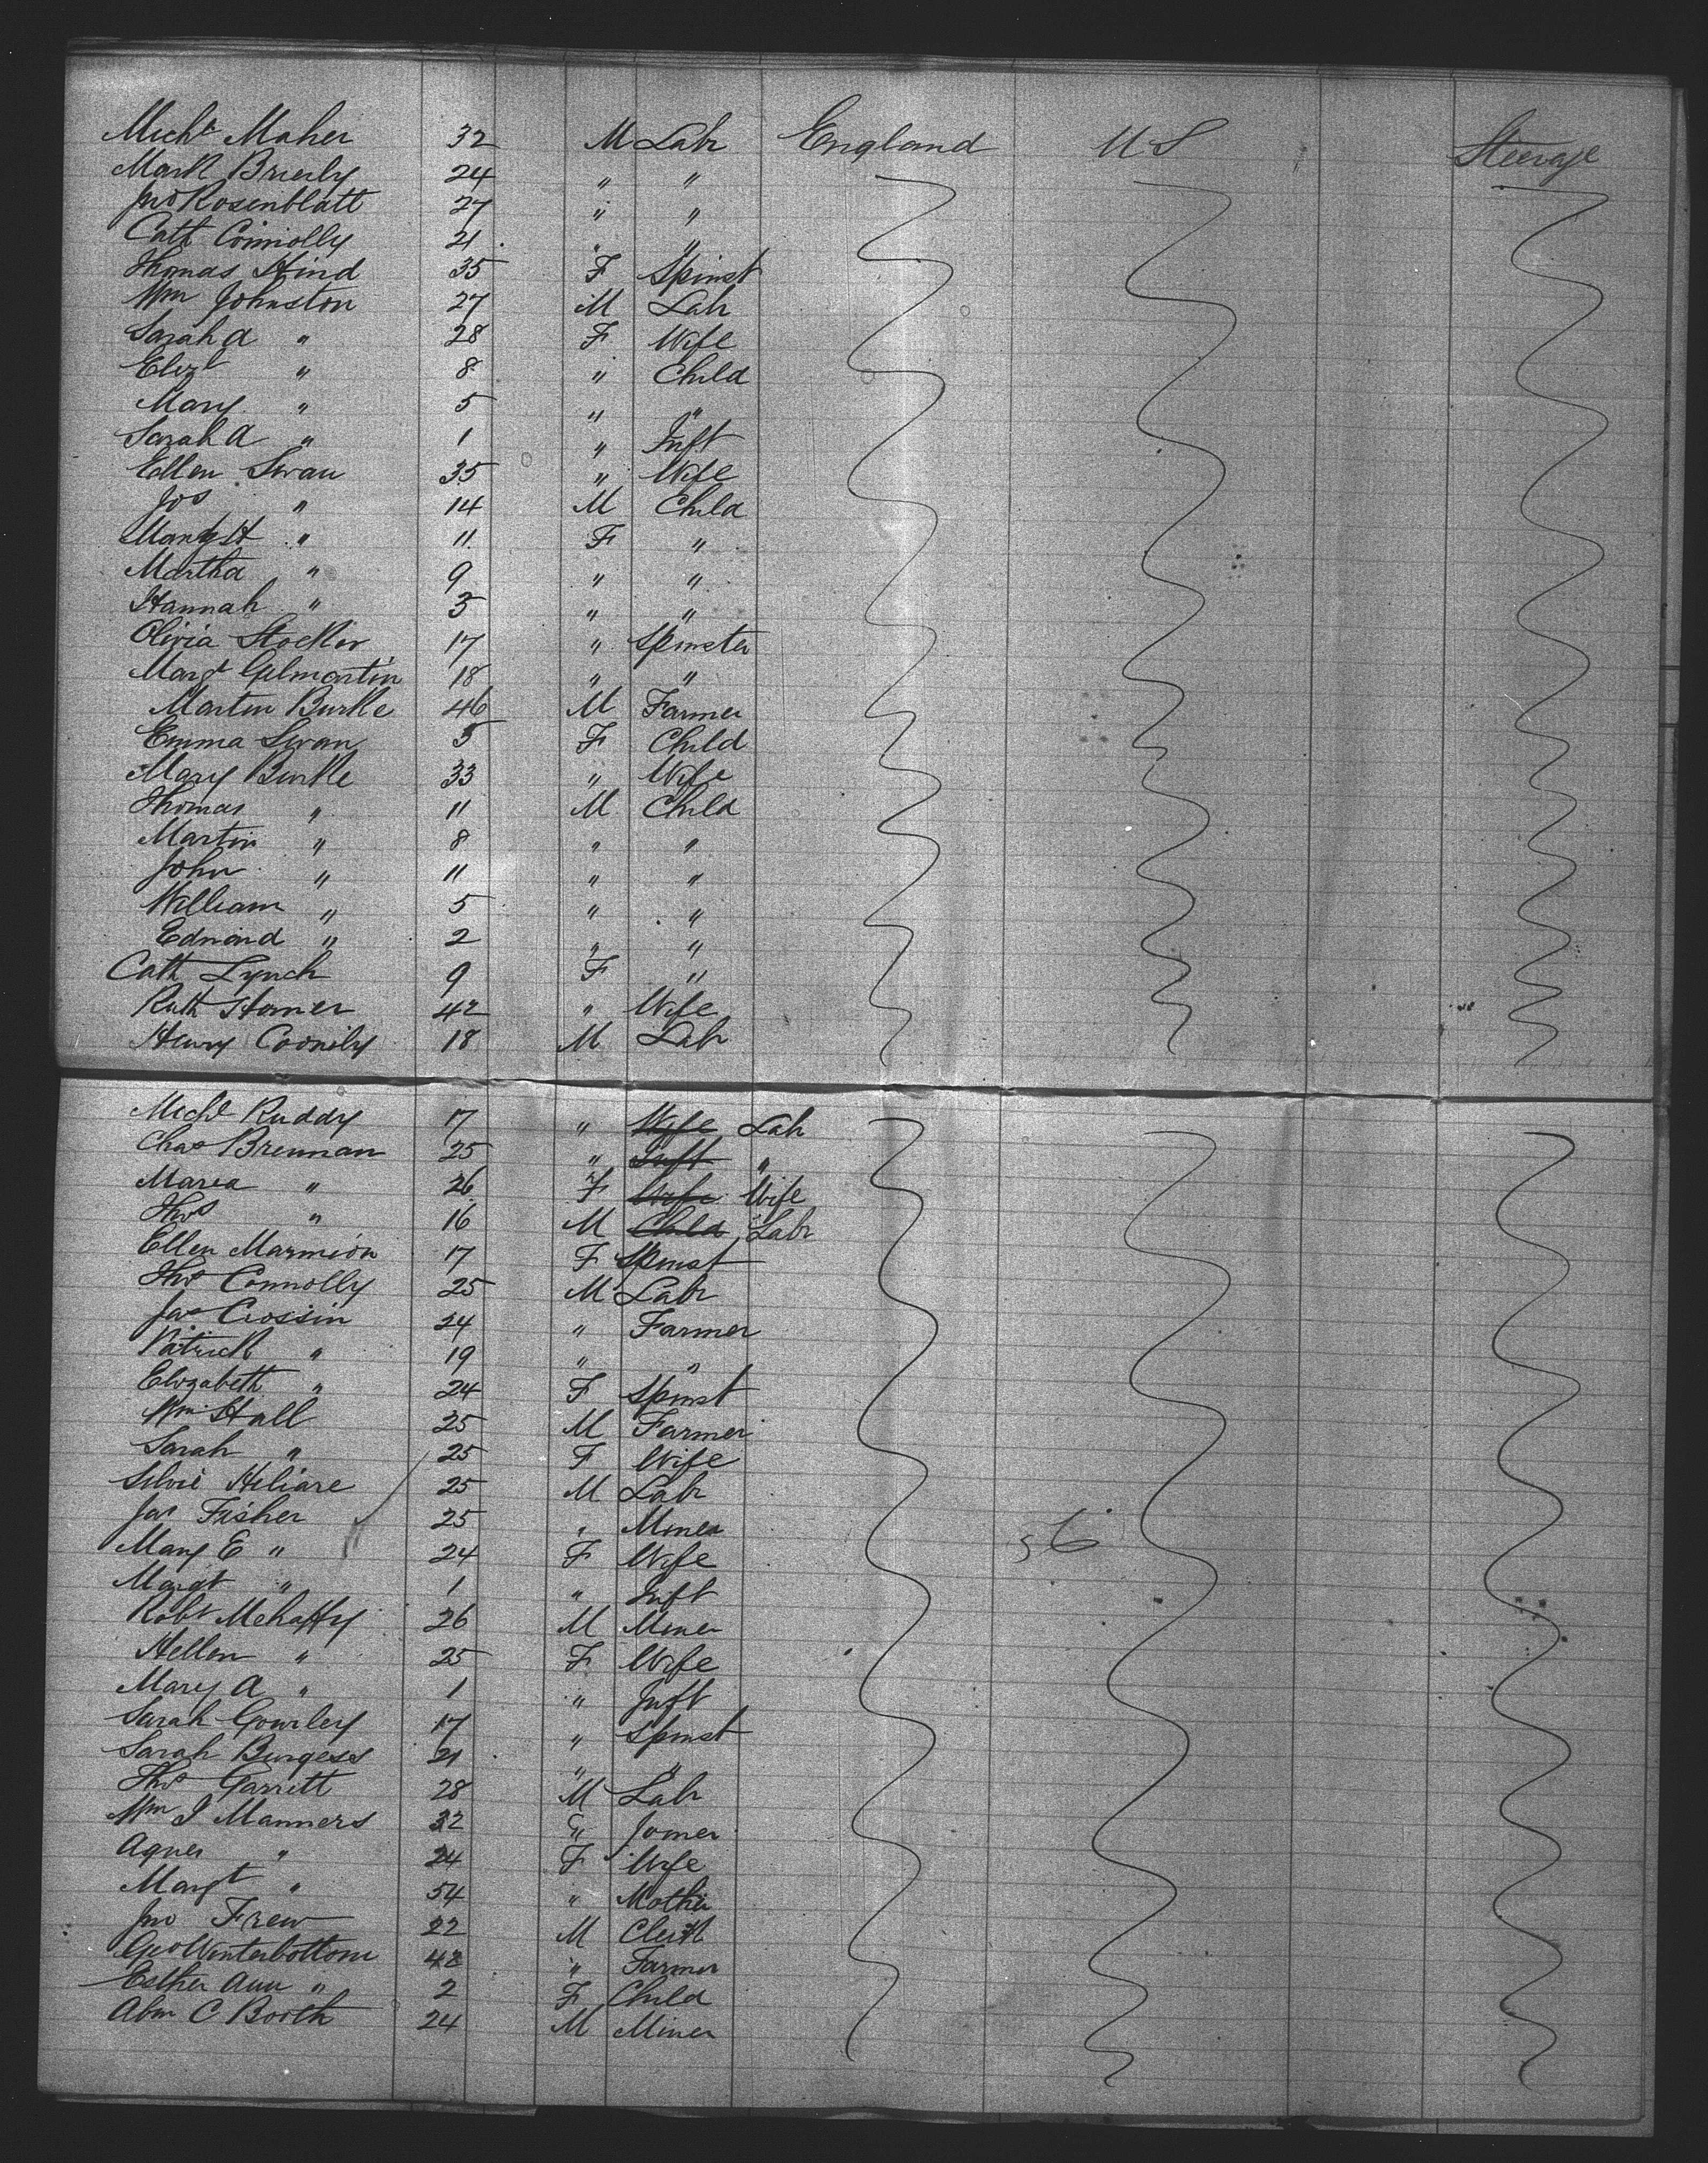 Michl Maher 32 M Labr England U S Steerage
Mark Brierly 24 " "
Jno Rosenblatt 27 " "
Cath Connolly 21 " "
Thomas Hind 35 F Spinst
Wm Johnston 27 M Labr
Sarah A " 28 F Wife
Elizt " 8 " Child
Mary " 5 " "
Sarah A " 1 " Inft
Ellen Swan 35 " Wife
Jos " 14 M Child
" 11 F "
Martha " 9 " "
Hannah " 3 " "
Olivia 17 " Spinster
Margt Gilmartin 18 " "
Martin Burke 46 M Farmer
Emma Swan 5 F Child
Mary Burke 33 " Wife
Thomas " 11 M Child
Martin " 8 " "
John " 11 " "
William " 5 " "
Edmond " 2 " "
Cath Lynch 9 F "
Ruth Homer 42 " Wife
Henry 18 M Labr
Michl Ruddy 17 " Wife Labr
Chas Brennan 25 " Inft "
Maria " 26 F Wife Wife
Thos " 16 M Child Labr
Ellen Marmion 17 F Spinst
Thos Connolly 25 M Labr
Jas Crossin 24 " Farmer
Patrick " 19 " "
Elizabeth " 24 F Spinst
Wm Hall 25 M Farmer
Sarah " 25 F Wife
Silvie Heliare 25 M Labr
Jas Fisher 25 " Miner
Mary E " 24 F Wife
Margt " 1 " Inft
Robt Mehaffy 26 M Miner
Hellen " 25 F Wife
Mary A " 1 " Inft
Sarah Gourley 17 " Spinst
Sarah Burgess 21 " "
Thos Garrett 28 M Labr
Wm J Manners 32 " Joiner
Agnes " 24 F Wife
Margt " 54 " Mother
Jno Frew 22 M Clerk
Geo Winterbottom 42 " Farmer
Esther Ann " 2 F Child
Abm C Booth 24 M Miner